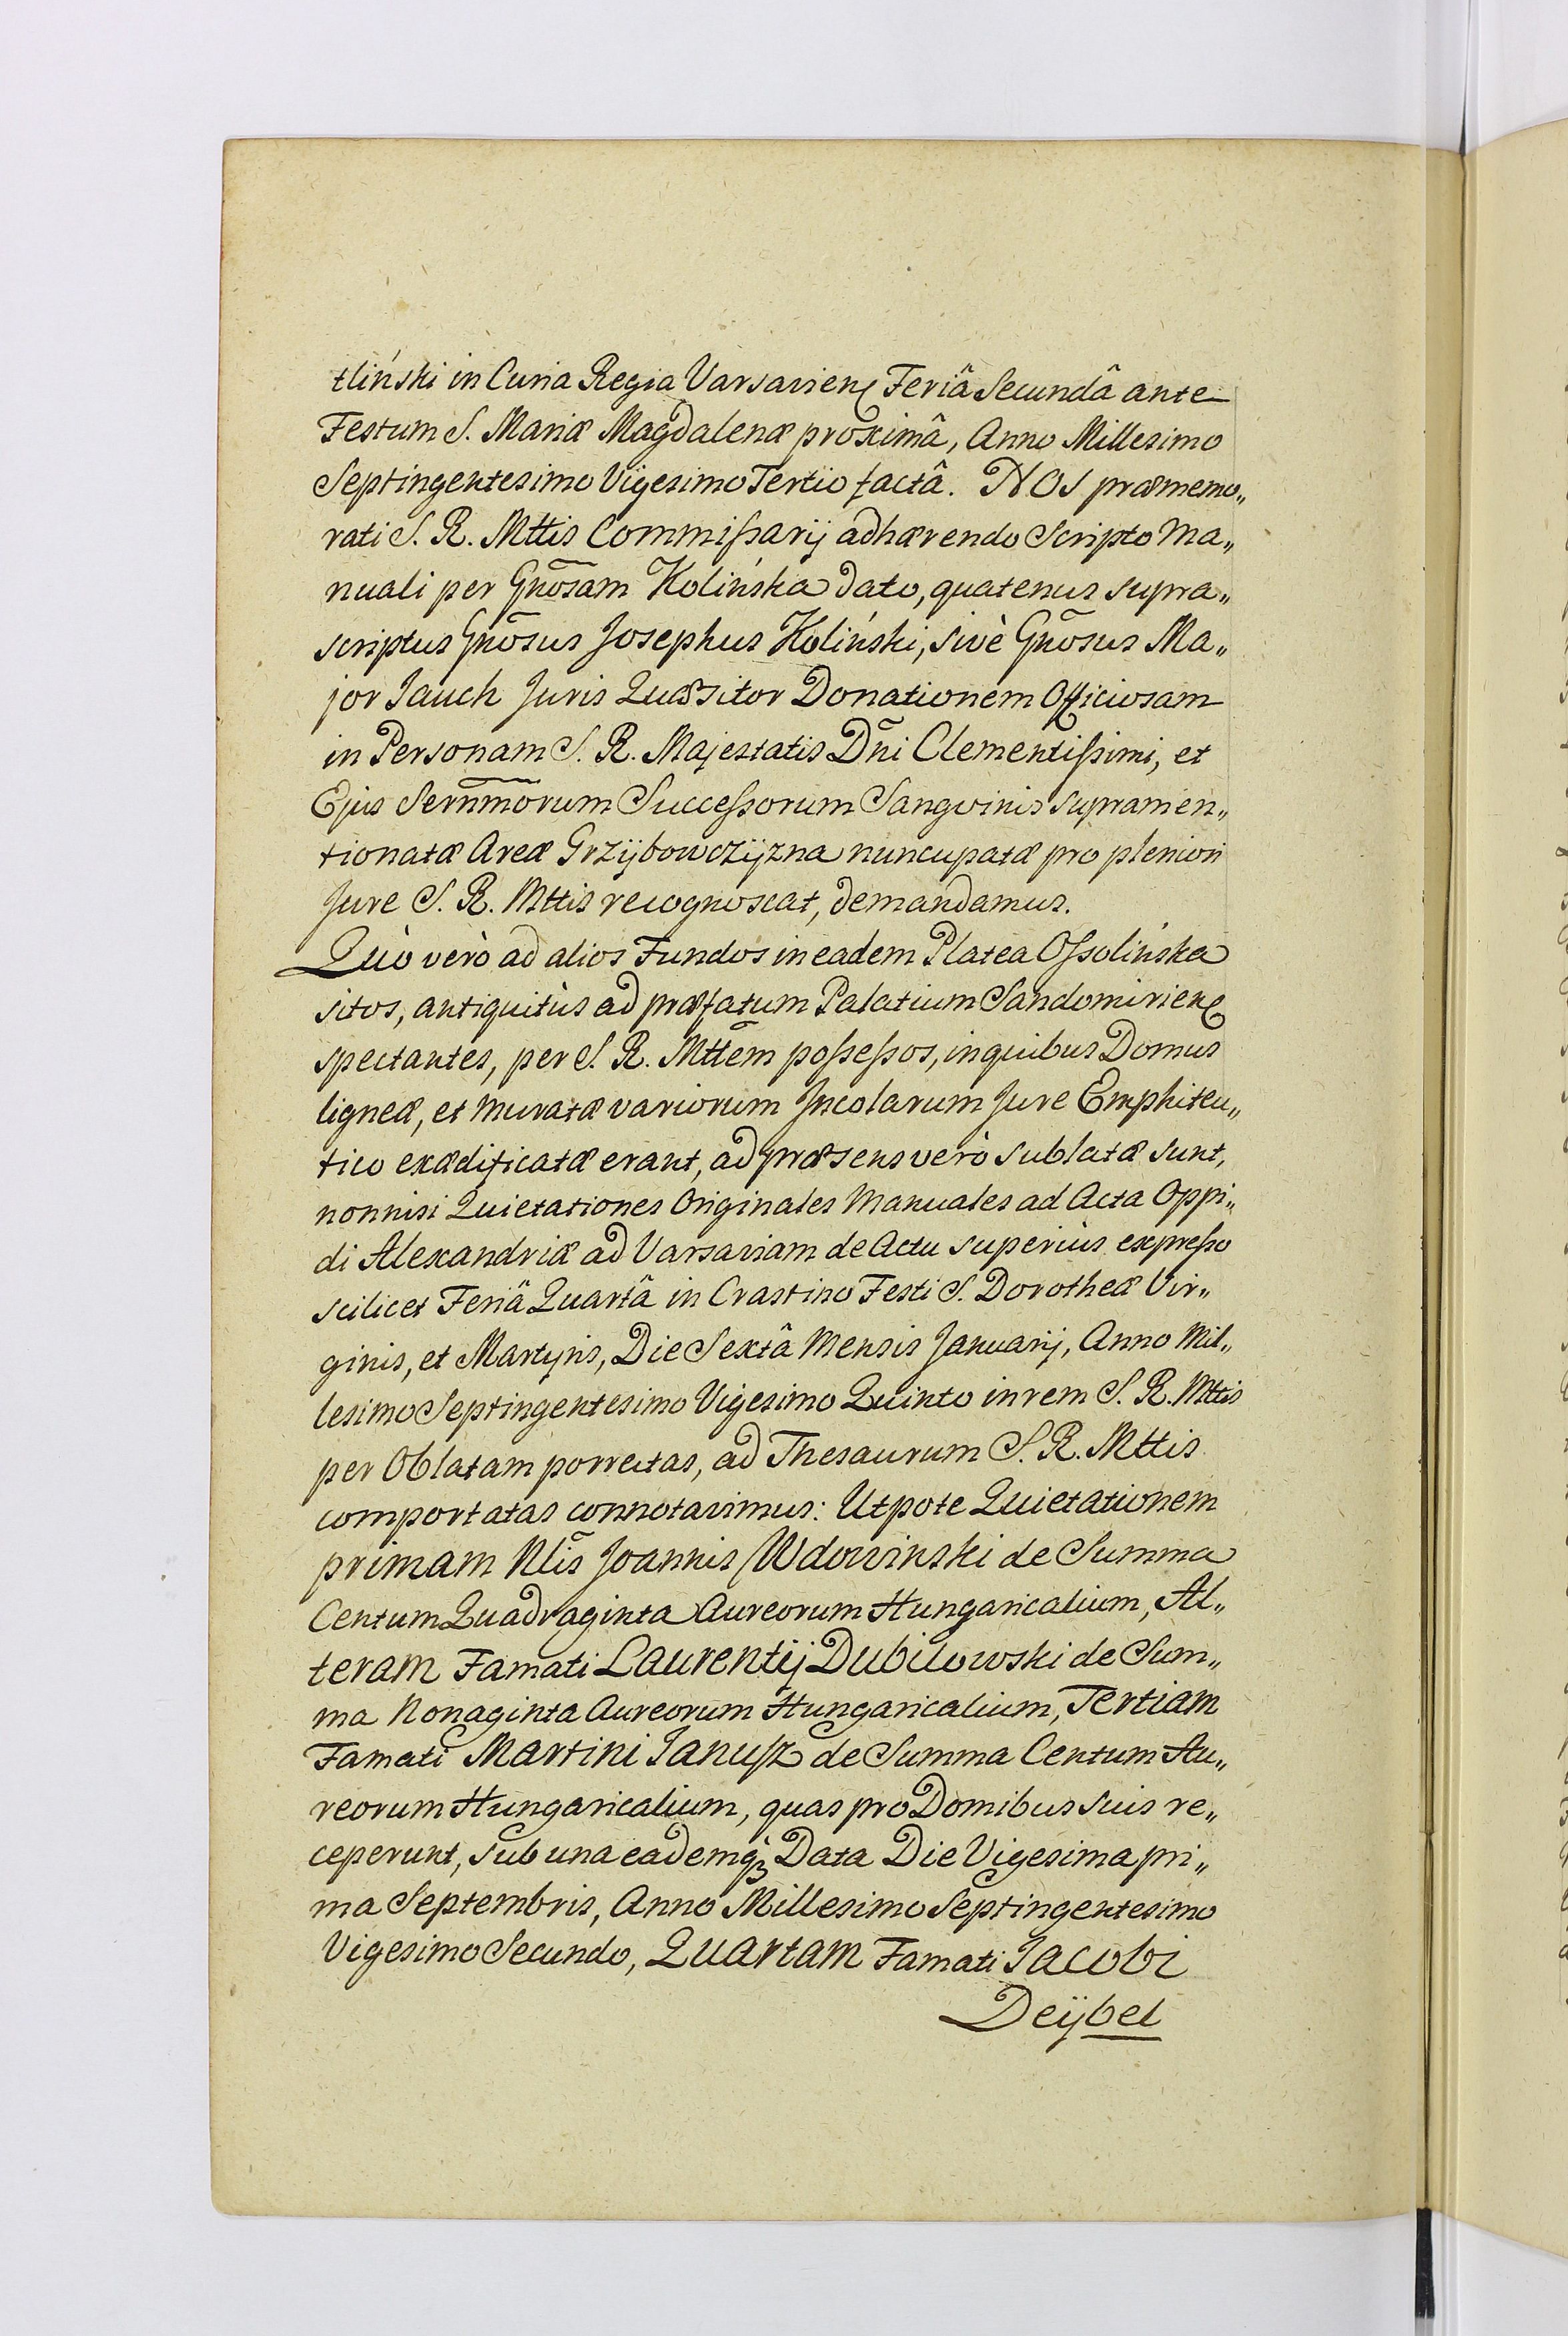 tliński in Curia Regia Varsavien Feriâ Secundâ ante
Festum S. Mariæ Magdalenæ proximâ, Anno Millesimo
Septingentesimo Vigesimo Tertio factâ. NOS præmemo„
rati S. R. Mttis Commißarij adhærendo Scripto Ma„
nuali per Gnõsam Kolińska dato, quatenus supra„
scriptus Gnõsus Josephus Koliński, sivè Gnõsus Ma„
jor Jauch Juris Quæsitor Donationem Officiosam
in Personam S. R. Majestatis Dñi Clementißimi, et
Ejus Sernmõrum Succeßorum Sangvinis supramen„
tionatæ Areæ Grzÿbowczÿzna nuncupatæ pro pleniori
Jure S. R. Mttis recognoscat, demandamus.
Quò verò ad alios Fundos in eadem Platea Oßolińska
sitos, antiquitùs ad præfatum Palatium Sandomirien
spectantes, per S. R. Mttẽm poßeßos, in quibus Domus
ligneæ, et muratæ variorum Incolarum Jure Emphiteu„
tico exædificatæ erant, ad præsens verò sublatæ sunt,
nonnisi Quietationes Originales Manuales ad Acta Oppi„
di Alexandriæ ad Varsaviam de Actu superiùs expreßo
scilicet Feriâ Quartâ in Crastino Festi S. Dorotheæ Vir„
ginis, et Martyris, Die Sextâ Mensis Januarij, Anno Mil„
lesimo Septingentesimo Vigesimo Quinto in rem S. R. Mttis
per Oblatam porrectas, ad Thesaurum S. R. Mttis
comportatas connotavimus: Utpote Quietationem
primam Nlĩs Joannis Wdowinski de Summa
Centum Quadraginta Aureorum Hungaricalium, Al„
teram Famati Laurentij Dubilowski de Sum„
ma Nonaginta Aureorum Hungaricalium, Tertiam
Famati Martini Janusz de Summa Centum Au„
reorum Hungaricalium, quas pro Domibus suis re„
ceperunt, sub una eademqꝫ Data Die Vigesima pri„
ma Septembris, Anno Millesimo Septingentesimo
Vigesimo Secundo, Quartam Famati Jacobi
Deÿbel